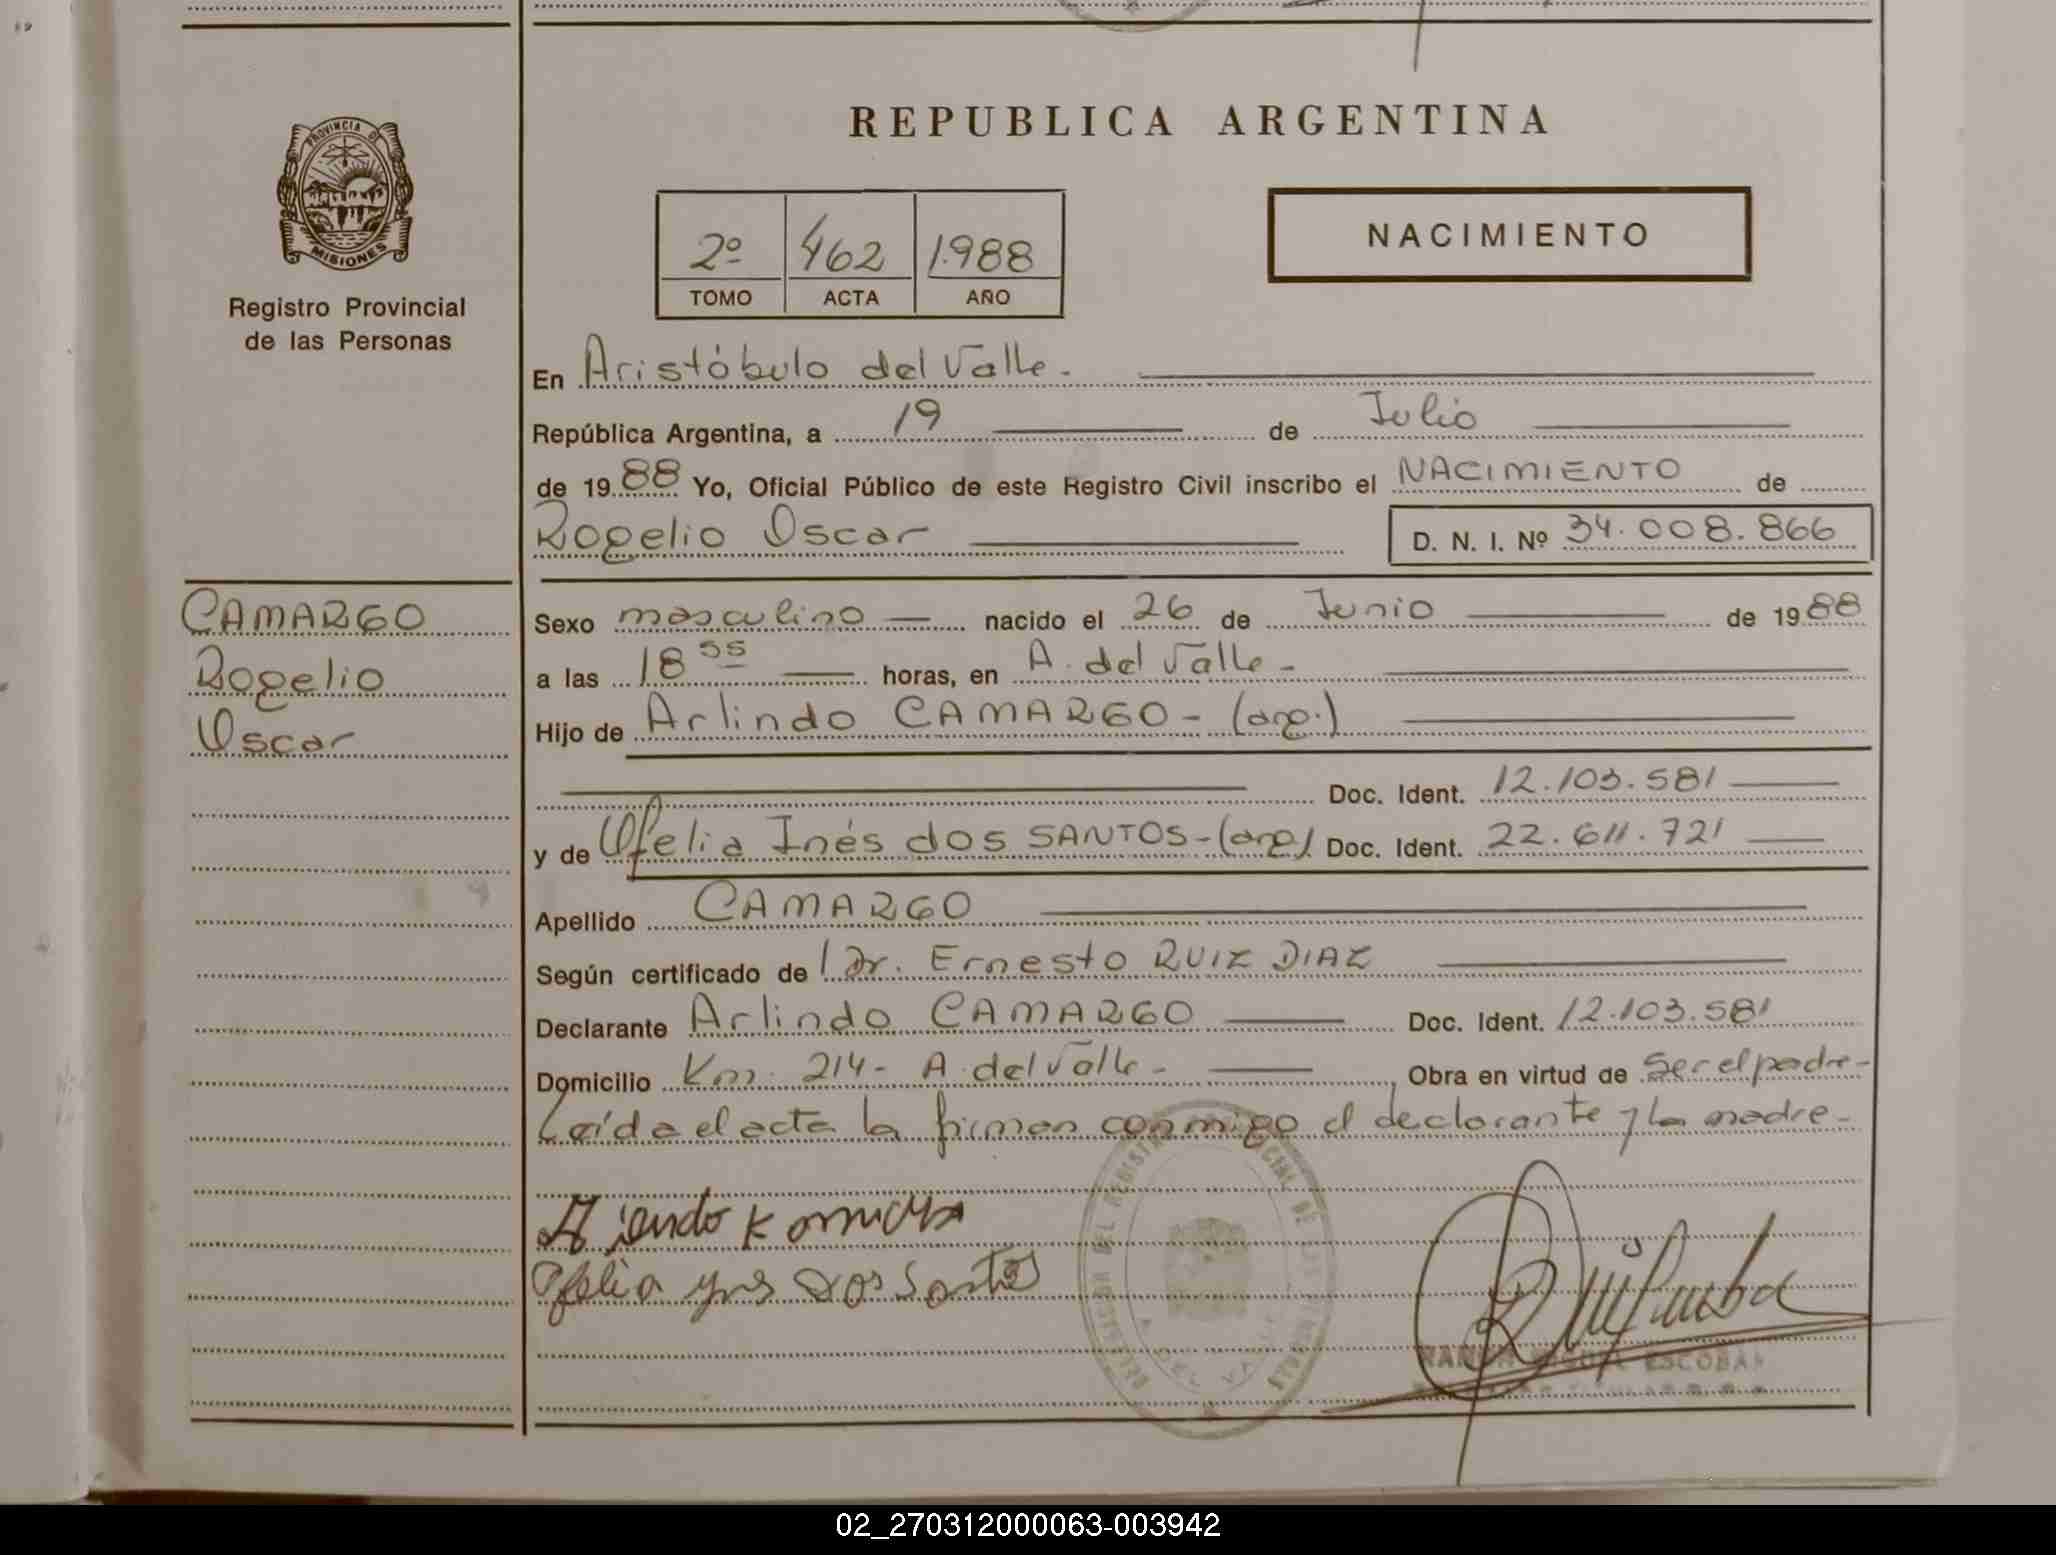 REPUBLICA ARGENTINA
PROVINCIA DE
MISIONES
Registro Provincial
de las Personas
2º 462 1.988
TOMO ACTA AÑO
NACIMIENTO
En Aristóbulo del Valle.
República Argentina, a 19 de Julio
de 1988 Yo, Oficial Público de este Registro Civil inscribo el NACIMIENTO de
Rogelio Oscar D. N. I. Nº 34.008.866
CAMARGO
Rogelio
Oscar
Sexo masculino nacido el 26 de Junio de 1988
a las 18 55 horas, en A. del Valle-
Hijo de Arlindo CAMARGO- (arg.)
Doc. Ident. 12.103.581
y de Ofelia Inés dos SANTOS-(arg) Doc. Ident. 22.611.721
Apellido CAMARGO
Según certificado de Dr. Ernesto RUIZ DIAZ
Declarante Arlindo CAMARGO Doc. Ident. 12.103.581
Domicilio Km. 214- A. del Valle- Obra en virtud de Ser el padre-
Leída el acta la firman conmigo el declarante y la madre-
Ofelia ynes Dos Santos
DELEGACION DEL REGISTRO PROVINCIAL DE LAS PERSONAS
A. DEL VALLE
RAMON MIGUEL ESCOBAR
02_270312000063-003942